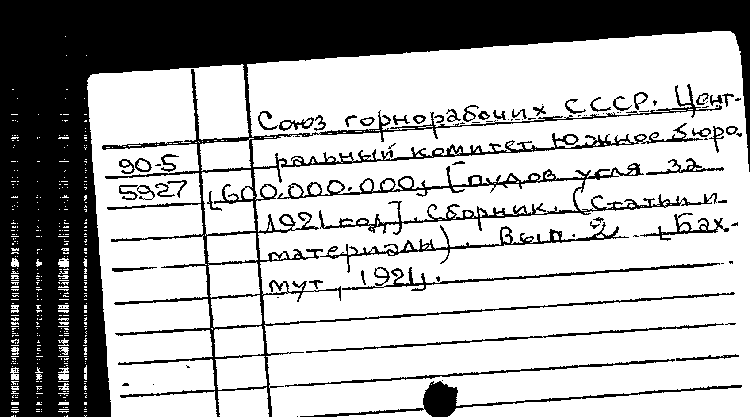 Союз горнорабочих СССР. Цент-
90-5 ральный комитет. Южное бюро.
5927 [600.000.000] [пудов угля за
1921 год]. Сборник. (Статьи и
материалы). Вып. 2. [Бах-
мут, 1921].